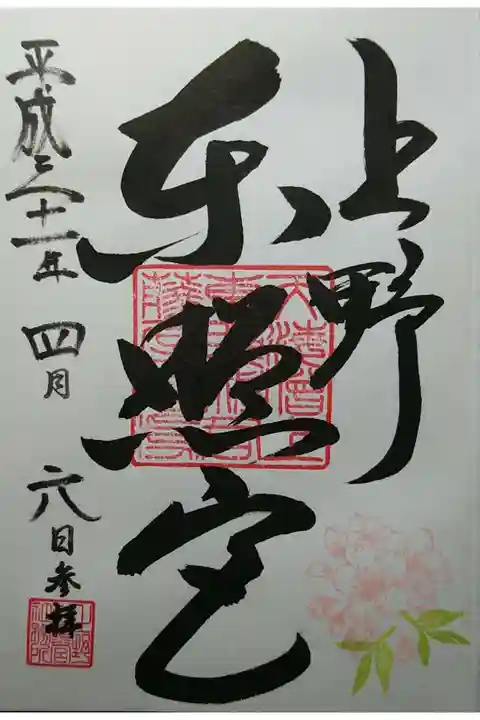 上野
東照宮
平成三十一年 四月 六日参拝